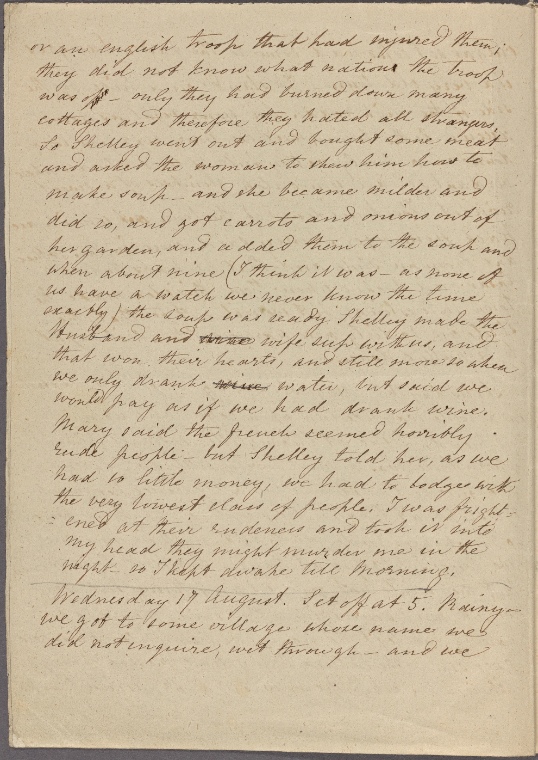 or an english troop that had injured them;
they did not know what nation the troop
was of – only they had burned down many
cottages and therefore they hated all strangers.
So Shelley went out and bought some meat
and asked the woman to shew him how to
make soup – and she became milder and
did so, and got carrots and onions out of
her garden, and added them to the soup and
when about nine (I think it was – as none of
us have a watch we never know the time
exactly) the soup was ready Shelley made the
Husband and wife sup with us, and
that won their hearts, and still more so when
we only drank wine water, but said we
would pay as if we had drank wine.
Mary said the french seemed horribly
rude people – but Shelley told her, as we
had so little money, we had to lodge with
the very lowest class of people. I was fright=
=ened at their rudeness and took it into
my head they might murder me in the
night – so I kept awake till Morning.
Wednesday 17 August. Set off at 5. Rainy –
we got to some village whose name we
did not enquire, wet through – and we